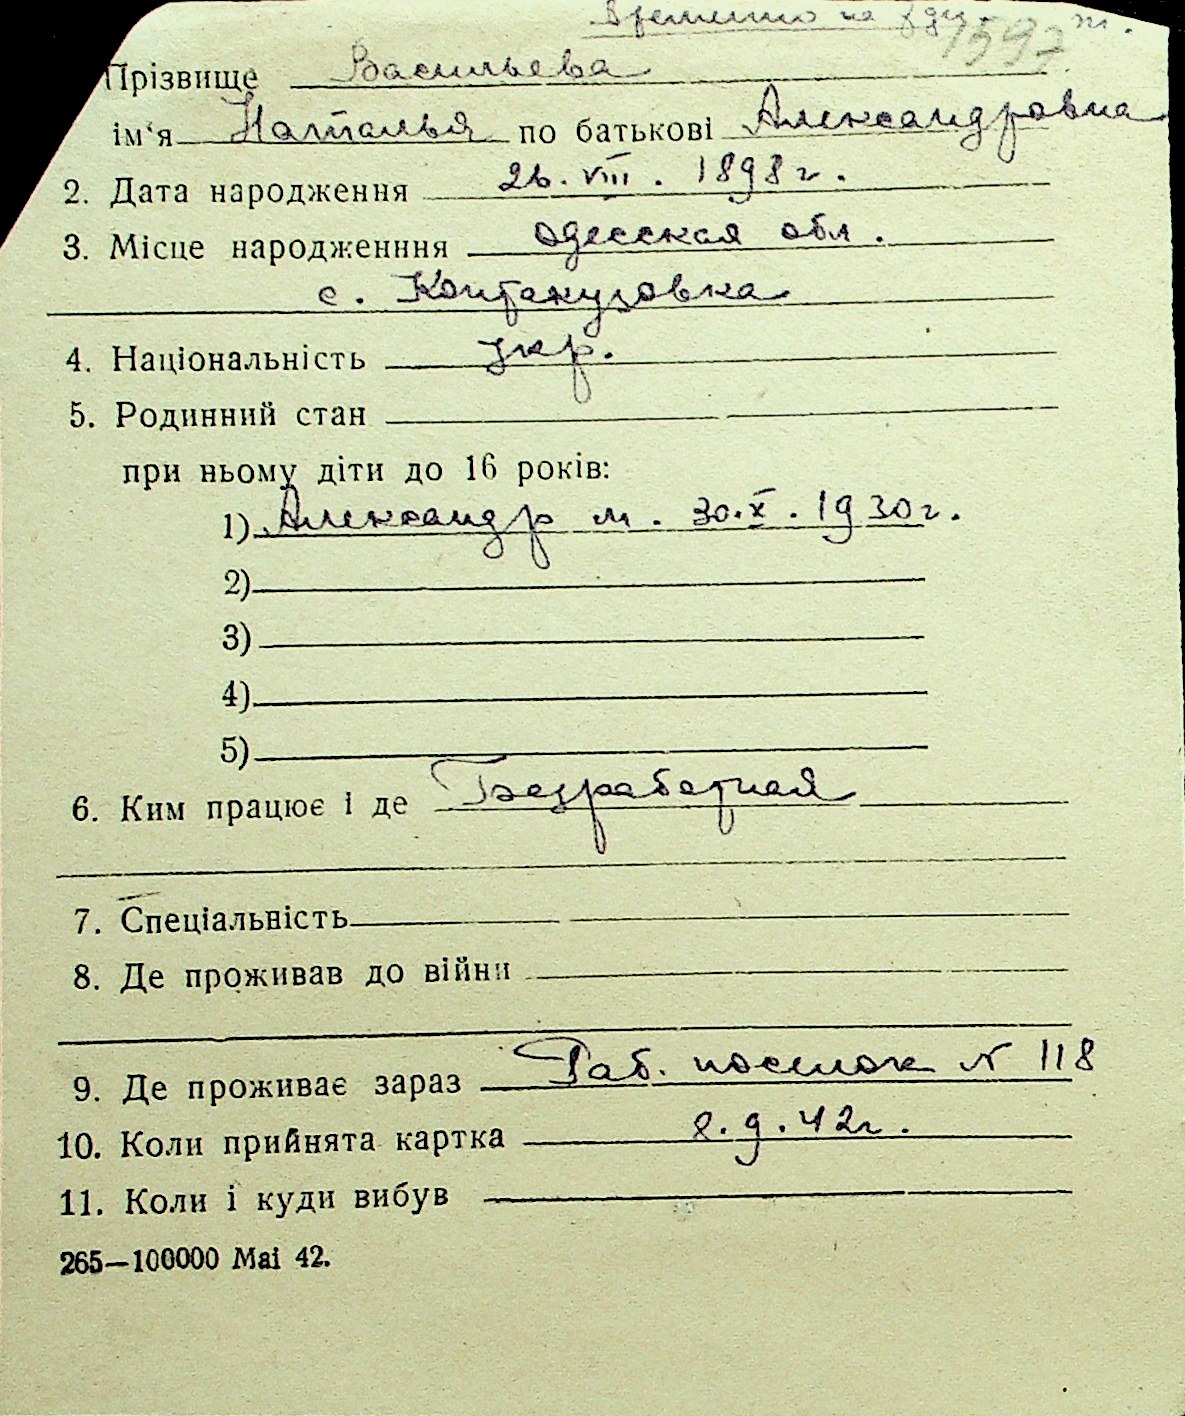 Временно на
1597
Прізвище Васильева
ім'я Наталья по батькові Александровна
2. Дата народження 26. VIII. 1898 г.
3. Місце народженння Одесская обл.
с. Контакузовка
4. Національність укр.
5. Родинний стан
при ньому діти до 16 років:
1) Александр м. 30.X.1930 г.
2)
3)
4)
5)
6. Ким працює і де Безработная
7. Спеціальність
8. Де проживав до війни
9. Де проживає зараз Раб. поселок N 118
10. Коли прийнята картка 2.9.42 г.
11. Коли і куди вибув
265—100000 Mai 42.